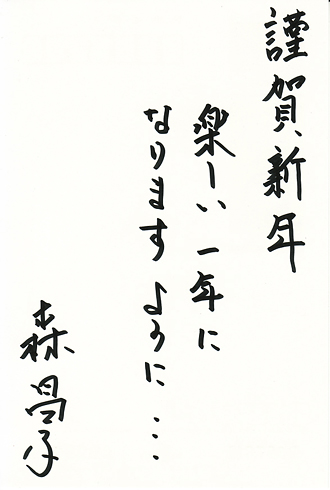 謹賀新年
楽しい一年に
なりますように…
森昌子